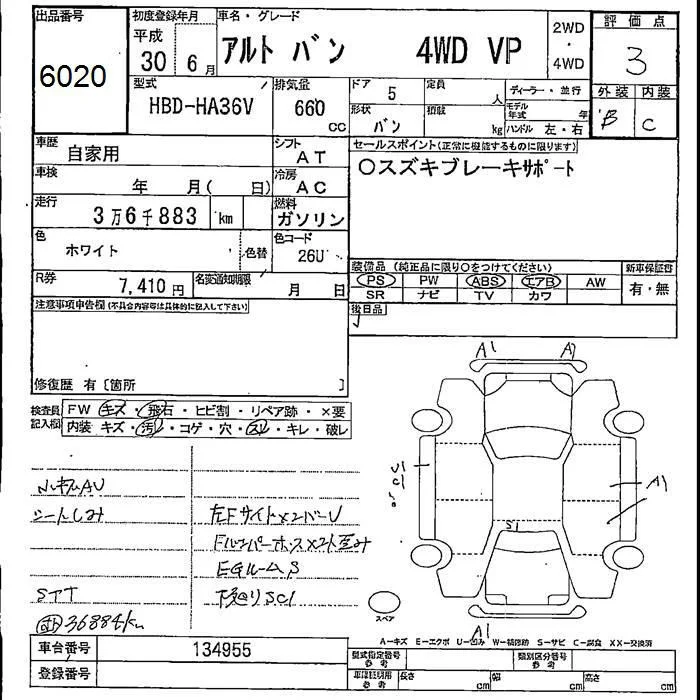 出品番号
6020
初度登録年月
平成
30 6月
車名・グレード
アルト バン 4WD VP
2WD
・
4WD
評価点
3
外装 内装
B C
型式
HBD-HA36V
排気量
660
cc
ドア 5
定員
人
形状 バン
積載
kg
ディーラー・並行
モデル年式 年
ハンドル 左・右
車歴 自家用
シフト AT
車検 年 月( 日)
冷房 AC
走行 3万6千883 km
燃料 ガソリン
色 ホワイト
色替
色コード 26U
R券 7,410円
名変通知期限 月 日
セールスポイント(正常に機能するものに限ります)
○スズキブレーキサポート
装備品(純正品に限り○をつけてください)
PS PW ABS エアB AW
SR ナビ TV カワ
新車保証書
有・無
後日品
注意事項申告欄(不具合内容等は具体的に記入して下さい)
修復歴 有〔箇所 〕
検査員記入欄
FW キズ・飛石・ヒビ割・リペア跡・×要
内装 キズ・汚レ・コゲ・穴・スレ・キレ・破レ
シートしみ
EGルームS
下廻りSC1
36884km
A1 A1
U1
C1
A1
S1
A1
スペア
A-キズ E-エクボ U-凹み W-補修跡 S-サビ C-腐食 XX-交換済
車台番号 134955
登録番号
型式指定番号
参考
類別区分番号
参考
車庫証明用
参考
長さ cm
幅 cm
高さ cm